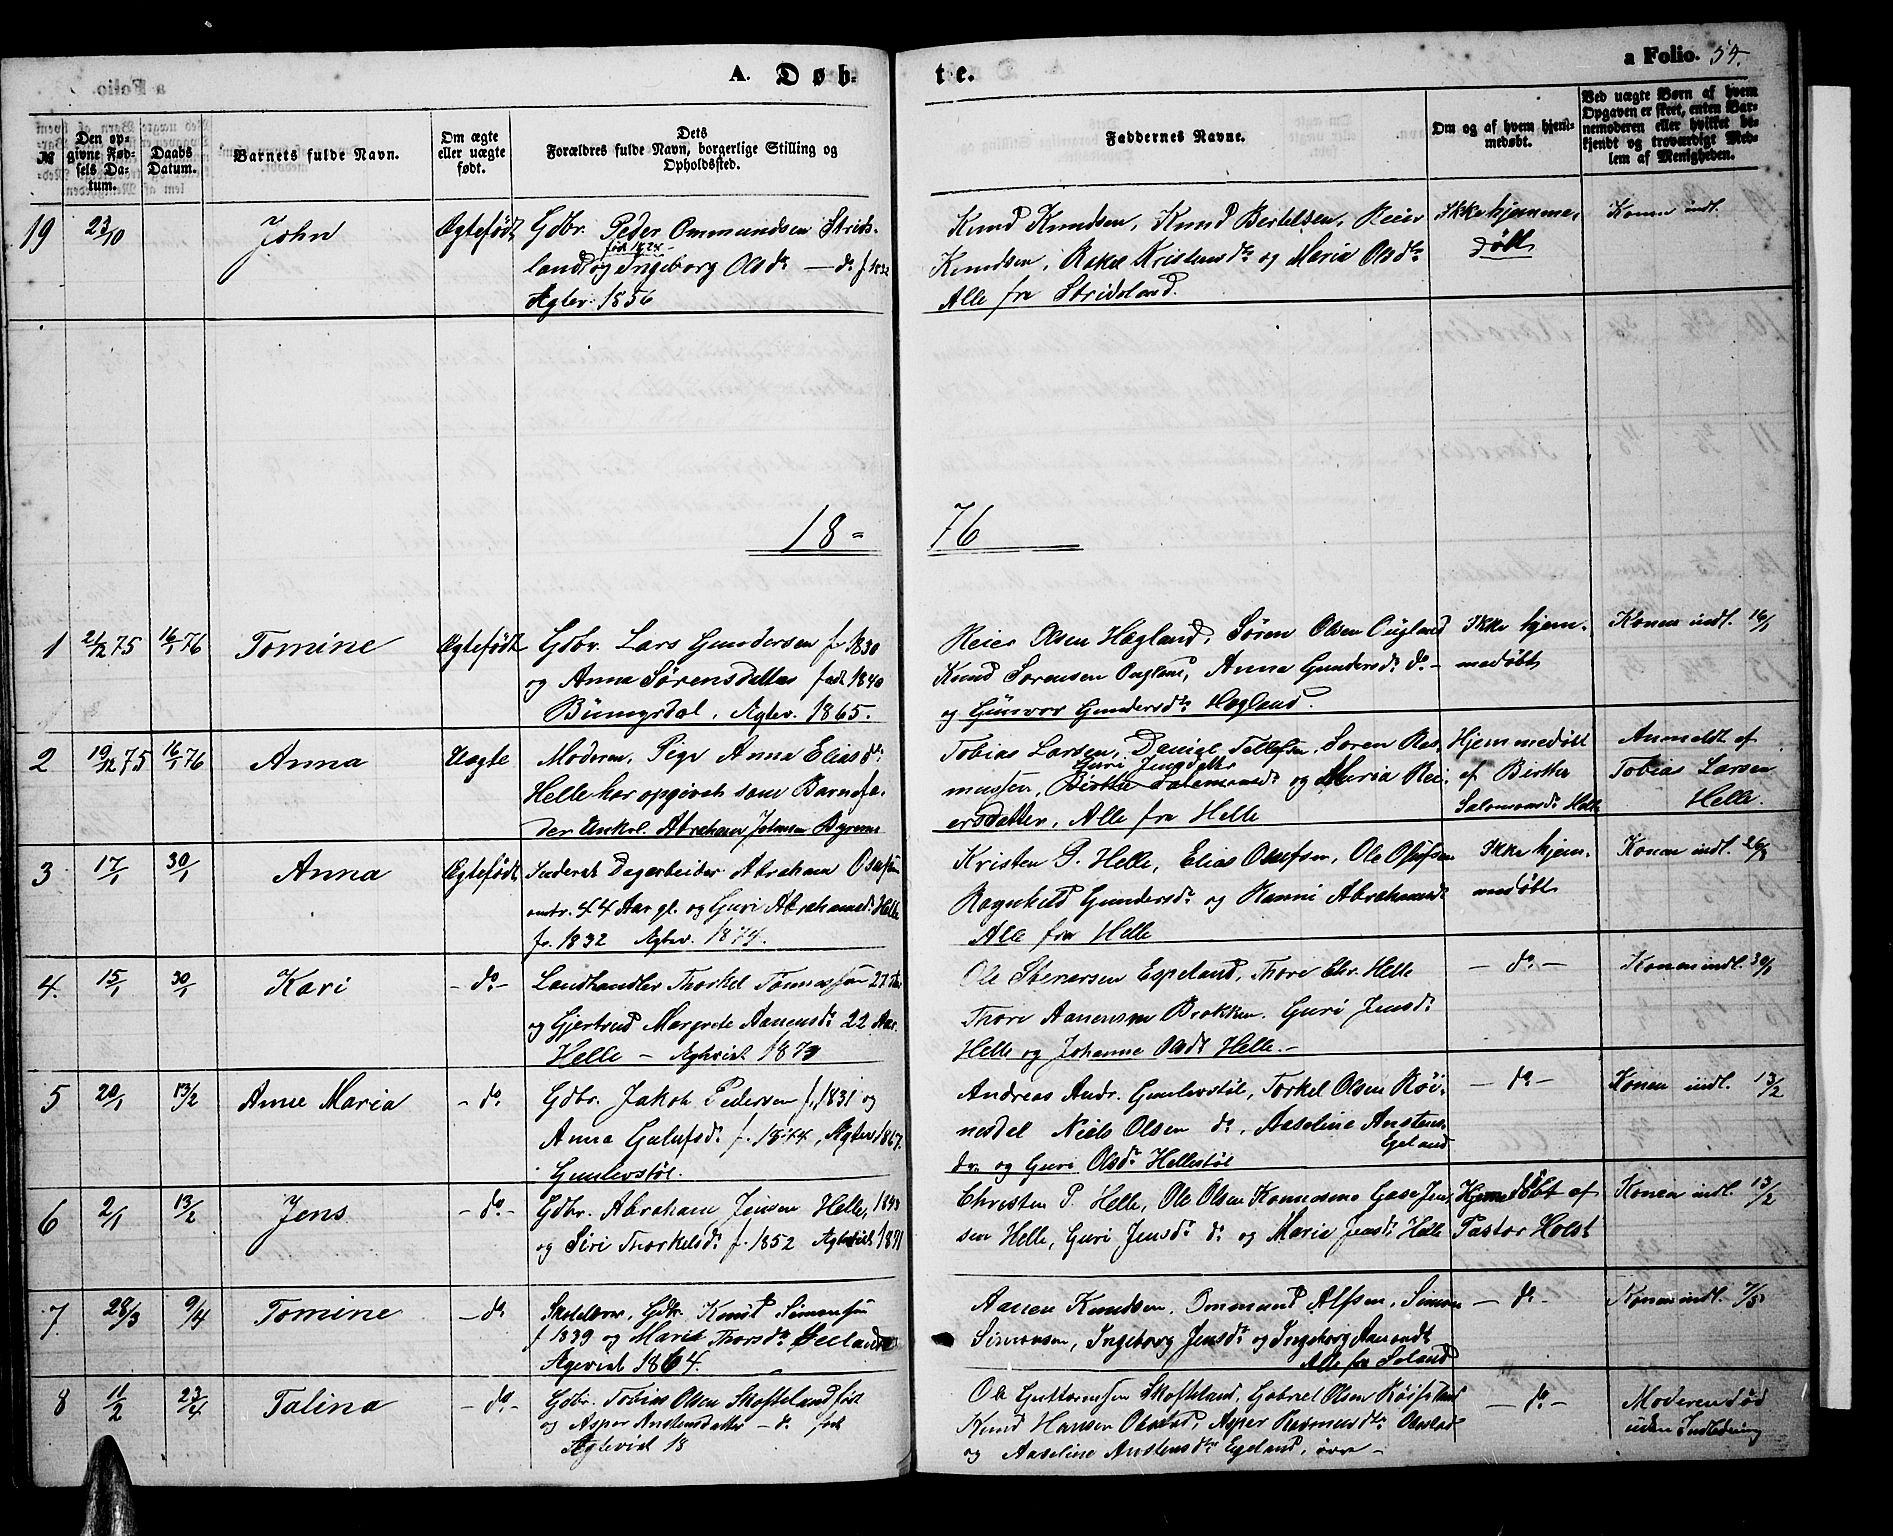 A. Døb- te. a Folio. 54.
№
Den opgivne Fødsels Datum.
Daabs Datum.
Barnets fulde Navn.
Om ægte eller uægte født.
Dets Forældres fulde Navn, borgerlige Stilling og Opholdssted.
Faddernes Navne.
Om og af hvem hjemmedøbt.
Ved uægte Børn af hvem Opgaven er skeet, enten Barnemoderen eller hvilket bekjendt og troværdigt Medlem af Menigheden.
19 23/10 John Ægtefødt
Gdbr. Peder Ommundsen Strids-
land født 1824 og Ingeborg Olsdr — do f 1832
Ægtev. 1856
Knud Knudsen, Knud Bertelsen, Reier
Knudsen, Rakel Kristensdtr og Maria Olsdtr
Alle fra Stridsland.
Ikke hjemme-
døbt
Konen indl.
18= 76
1 21/12 75 16/1 76 Tomine Ægtefødt
Gdbr. Lars Gundersen f. 1830
og Anna Sørensdatter født 1840
Ægtev. 1865.
Reier Olsen Høgland, Søren Olsen Ougland
Knud Sørensen Ougland, Anna Gundersdr do -
og Gunvor Gundersdtr Høgland.
Ikke hjem-
medøbt
Konen indl. 16/1
2 19/12 75 16/1 76 Anna Uægte
Moderen, Pige Anna Eliasdtr
Helle har opgivet som Barnefa-
der Enkel. Abraham Johnsen
Tobias Larsen, Daniel Tellefsen, Søren Ras-
mussen, Birthe Salomonsdr Guri Jensdatter og Maria Rei-
ersdatter, Alle fra Helle
Hjemmedøbt
af Birthe
Salomonsdr Helle
Anmeldt af
Tobias Larsen
Helle.
3 17/1 30/1 Anna Ægtefødt
Inderst Dagarbeider Abraham
omtr. 44 Aar gl. og Guri Abrahamsdr Helle
f. 1832 Ægtev. 1874.
Kristen P. Helle, Elias Olufsen, Ole Olufsen
Ragnhild Gundersdr og Ranni Abrahamsdr
Alle fra Helle
Ikke hjem-
medøbt
Konen indl.
4. 15/1 30/1 Kari - do -
Landhandler Thorkel Tønnessen
og Gjertrud Margrete Aanensdr 22 Aar
Helle - Ægteviet 1873
Ole Stenersen Egeland, Thore Chr. Helle
Thore Aanensen Brokken. Guri Jensdr
Helle og Johanne Olsdr Helle. -
- do -
Konen indl. 30/1
5 20/1 13/2 Anne Maria - do
Gdbr. Jakob Pedersen f. 1831 og
Anna Gulufsdr f. 1844, Ægtev. 1867.
Gunlevstøl.
Andreas Andr. Gunlevstøl, Torkel Olsen Røi-
nesdal Niels Olsen do, Aaseline Anstens-
dr Egeland og Guri Olsdr Hellestøl
- do -
Konen indl. 13/2
6 2/1 13/2 Jens - do -
Gdbr. Abraham Jensen Helle, 1843
og Siri Thorkelsdr f. 1852 Ægteviet 1871
Christen P. Helle, Ole Olsen
sen Helle, Guri Jensdr do og Marie Jensdr Helle
Hjemdøbt af
Pastor Holst
Konen indl. 13/2
7 28/3 9/4 Tomine - do
Skolelærer, Gdbr Knud Simonsen
f 1839 og Marie Thorsdtr Seeland
Ægteviet 1864.
Aanen Knudsen, Ommund Alfsen, Simon
Simonsen, Ingeborg Jensdtr og Ingeborg Aamundsdtr
Alle fra Seland
- do -
Konen indl. 7/5
8 11/2 23/4 Talina - do -
Gdbr. Tobias Olsen Skofteland født
og Asper Anstensdatter - do født
Ægteviet 18
Ole Guttormsen Skofteland, Gabriel Olsen Røifsland
Knud Hansen Obestad, Asper Rasmusdtr Obestad
og Aaseline Anstensdtr Egeland,
- do -
Moderen død
uden Indledning